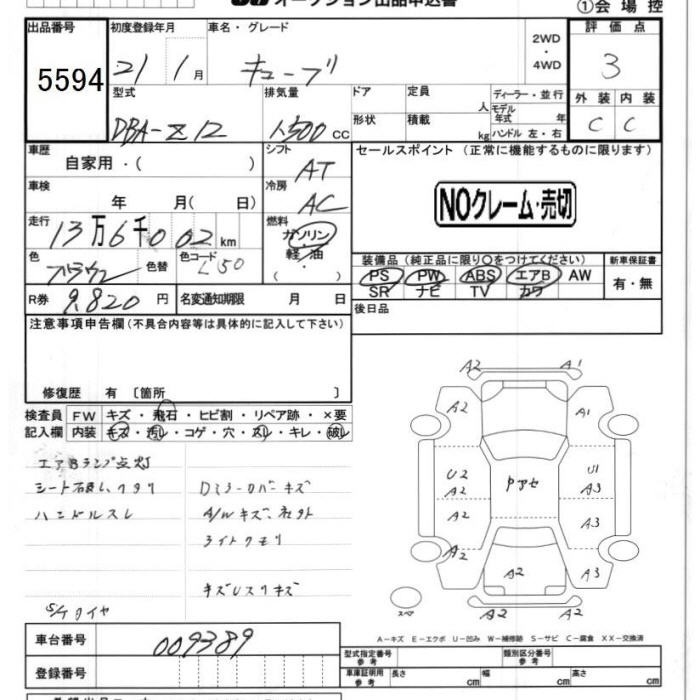 オークション出品申込書
①会場控
出品番号
5594
初度登録年月
21 1月
車名・グレード
キューブ
2WD
・
4WD
評価点
3
外装 内装
C C
型式
DBA-Z12
排気量
1500 cc
ドア
形状
定員 人
積載 kg
ディーラー・並行
モデル年式 年
ハンドル 左・右
車歴
自家用・( )
シフト
AT
セールスポイント (正常に機能するものに限ります)
NOクレーム・売切
車検
年 月( 日)
冷房
AC
走行
13万6千002km
燃料
ガソリン
軽・油
( ・ )
色
ブラウン
色替
色コード
L50
装備品 (純正品に限り○をつけてください)
PS PW ABS エアB AW
SR ナビ TV カワ
新車保証書
有・無
R券
9,820円
名変通知期限 月 日
後日品
注意事項申告欄(不具合内容等は具体的に記入して下さい)
修復歴 有〔箇所 〕
検査員 FW キズ・飛石・ヒビ割・リペア跡・×要
記入欄 内装 キズ・汚レ・コゲ・穴・スレ・キレ・破レ
エアBランプ点灯
シート破レ、ヘタリ
ハンドルスレ
Dミラーカバーキズ
A/Wキズ、社外
ライトクモリ
キズレスリキズ
S/Tタイヤ
A2 A1
A2 A1
U2 A2
ワアセ
U1 A3
A2 A3
A2 A2 A3
A2 A2
スペア
A-キズ E-エクボ U-凹み W-補修跡 S-サビ C-腐食 XX-交換済
車台番号
009389
登録番号
型式指定番号 参考
類別区分番号 参考
車庫証明用 参考
長さ cm 幅 cm 高さ cm